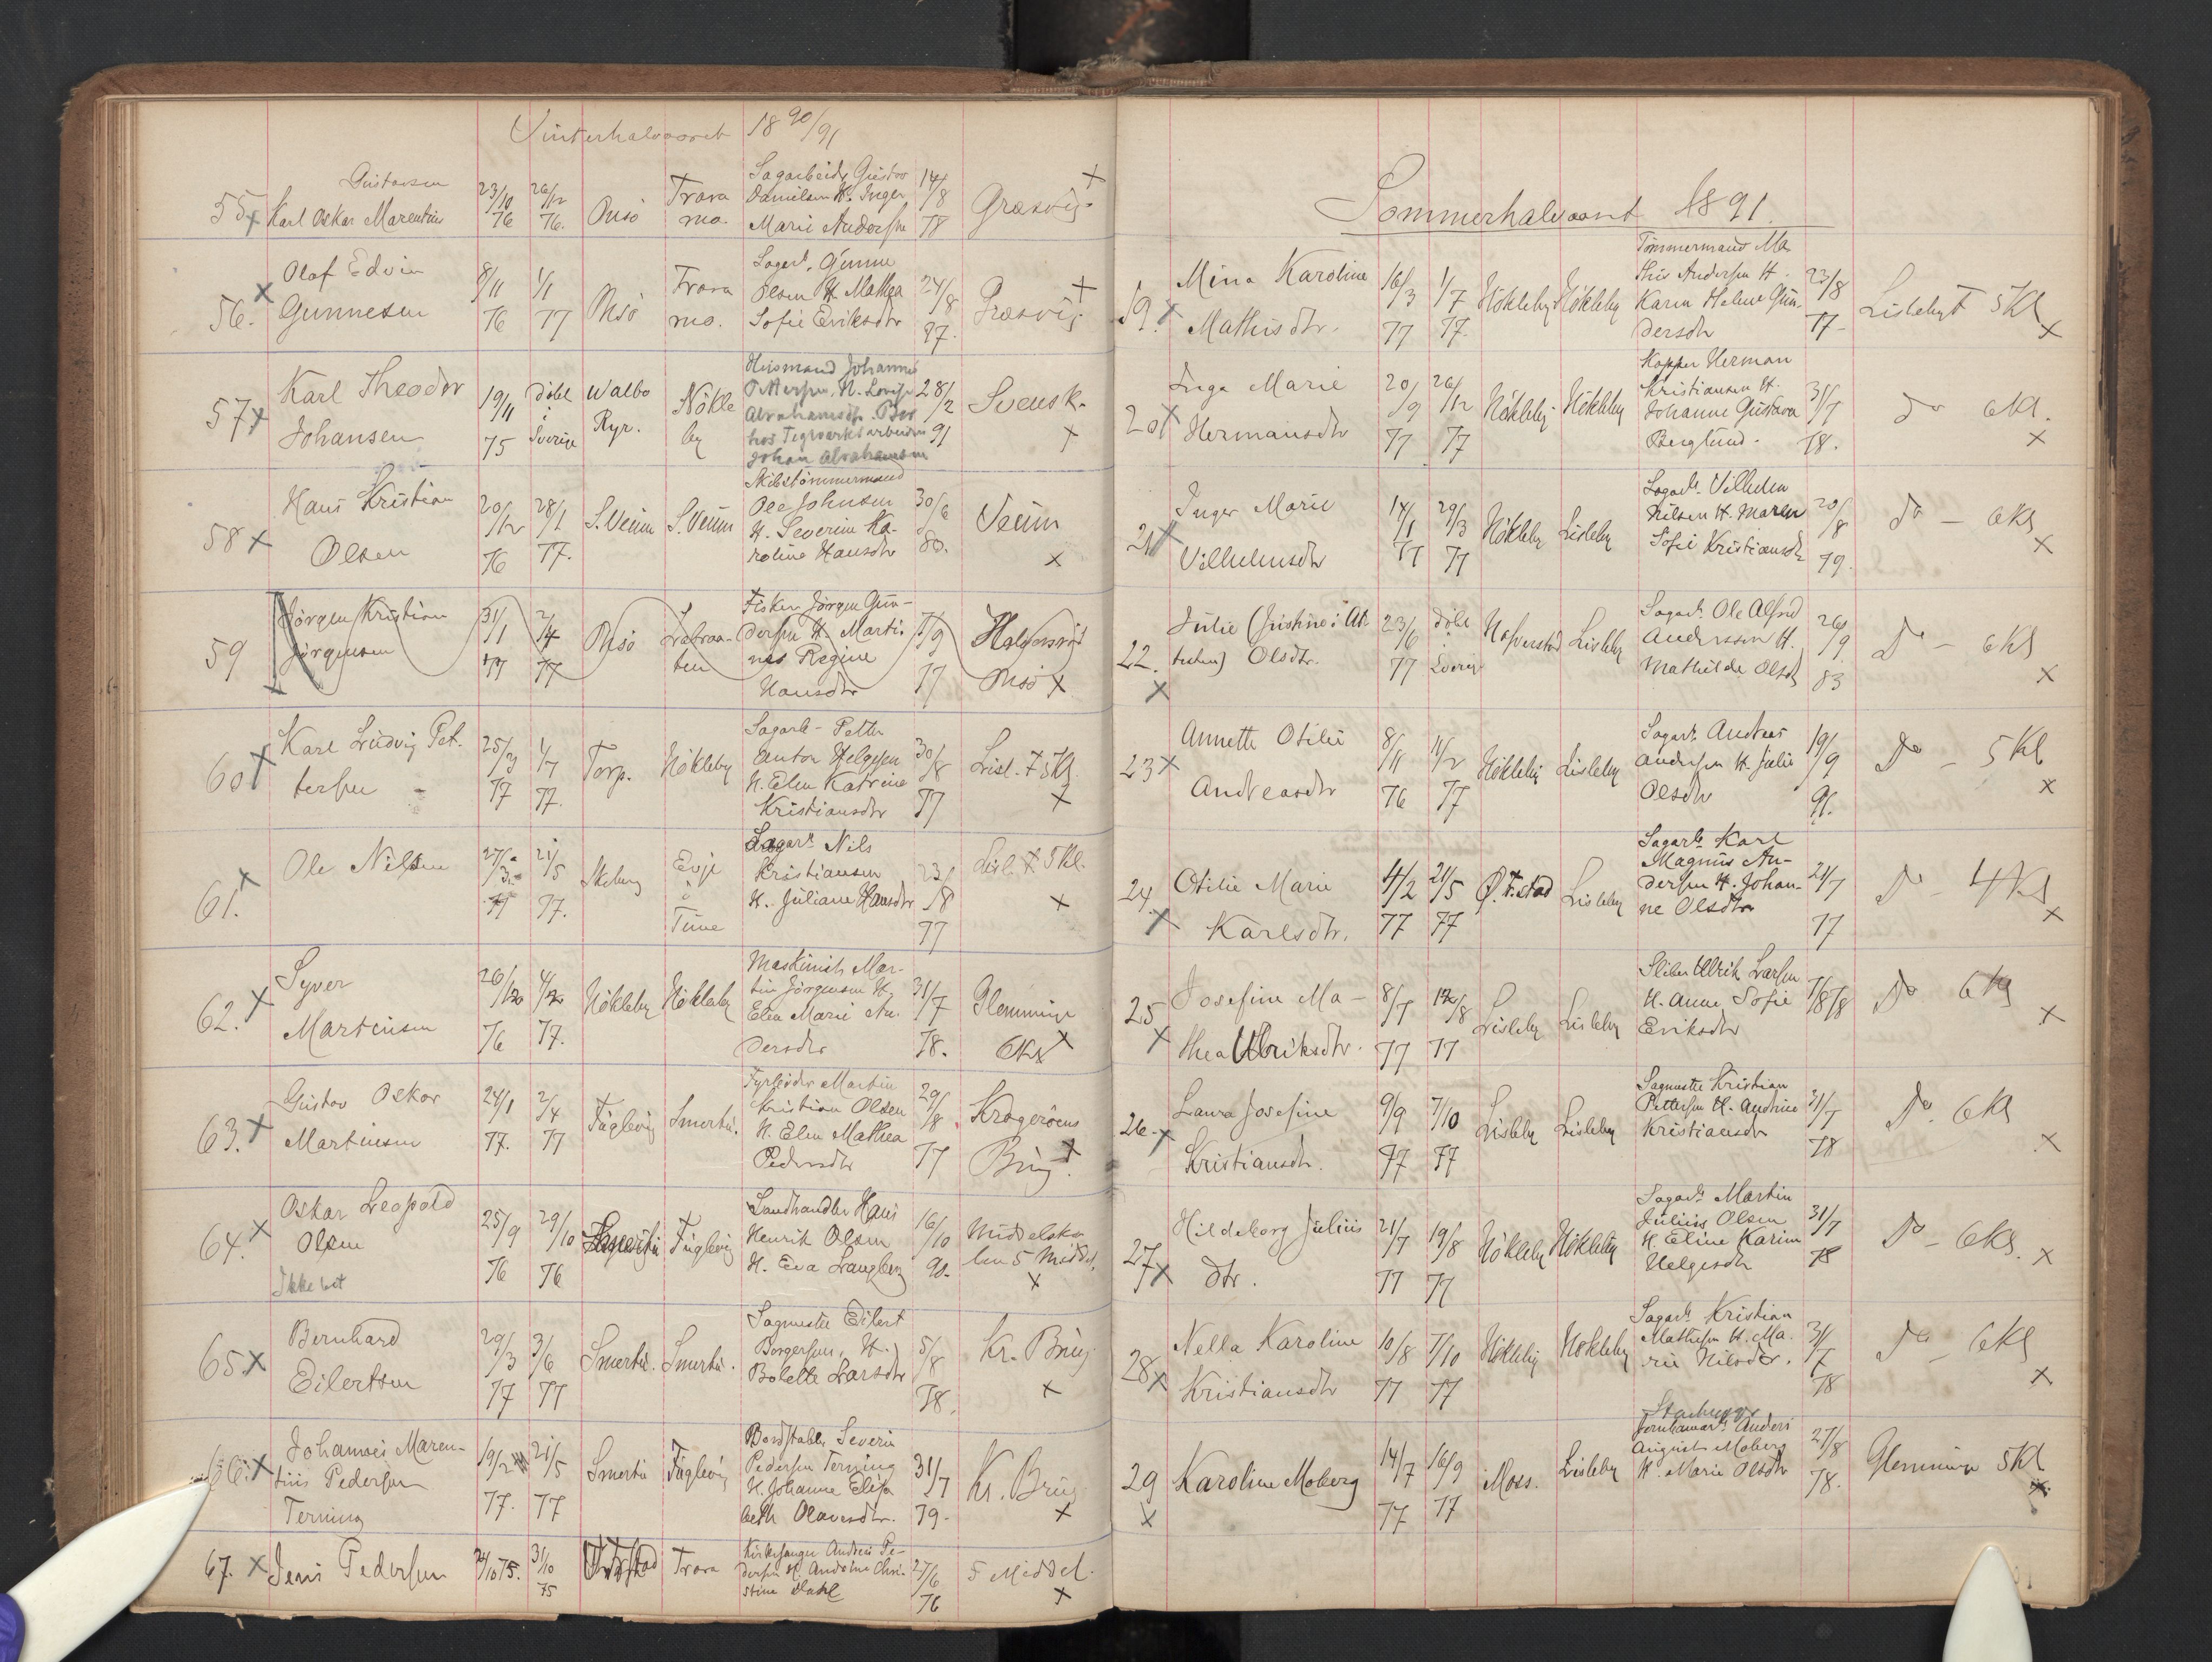 Vinterhalvaaret 18 90/91
55 x Gustavsen
Karl Oskar Marentius
23/10 76
26/12 76.
Onsö
Trara
mo.
Sagarbeider Gustav
Danielsen H. Inger
Marie Andersen
14/8 78
Græsvig x
56. x Olaf Edvin
Gunnesen
8/11 76
1/1 77
Onsö
Trara
mo.
Sagarb. Gunne
Olsen H. Mathea
Sofie Eriksdtr
24/8
Græsvig x
57 x Karl Theodor
Johansen
19/11 75
Döbt
i
Sverige
Walbo
Ryr.
Nökle
by
Husmand Johannes
Pettersen, H. Lovise
Abrahamsdtr. Bor
hos Tegverksarbeider
Johan Abrahamsen
28/2 91
Svensk.
x
58 x Hans Kristian
Olsen
20/12 76
28/1 77.
S. Veum
S. Veum
Skibstömmermand
Ole Johnsen
H. Severine Ka-
roline Hansdtr
30/6 80.
Veum
x
59 Jörgen Kristian
Jörgensen
31/1 77
2/4 77
Onsö
Fisker Jörgen Gun-
dersen H. Marti-
nes Regine
Hansdtr
77
Onsö x
60 x Karl Ludvig Pet-
tersen
25/3 77
1/7 77.
Torp.
Nökleby
Sagarb- Petter
Anton Helgesen
H. Elen Katrine
Kristiansdtr
30/8 77
Lisl. F 5 Kl.
x
61. x Ole Nilsen
27/3 77
21/5 77.
Evje
i
Tune
Sagarb. Nils
Kristiansen
H. Juliane Hansdtr
23/8 77
Lisl. F 5 Kl.
x
62. x Syver
Martinsen
76
77.
Nökleby
Nökleby
Maskinist Mar-
tin Jörgensen H.
Elen Marie An-
dersdtr
31/7 78.
Glemminge
6 Kl x
63. x Gustav Oskar
Martinsen
24/1 77.
2/4 77
Fuglevig
Smertu.
Fyrböder Martin
Kristian Olsen
H. Elen Mathea
Pedersdtr
29/8 77
Kragerøens
Brug. x
64. x Oskar Leopold
Olsen
Ikke vet
25/9 76
29/10 76
Fuglevig
Landhandler Hans
Henrik Olsen
H. Eva Langberg
16/10 90.
Middelsko
len 5 Middel.
x
65 x Bernhard
Eilertsen
29/3 77
3/6 77
Smertu.
Smertu.
Sagmester Eilert
Borgersen, H.
Bolette Larsdtr
5/8 78.
Kr. Brug
x
66. x Johannes Maren-
tius Pedersen
Terning
19/2 77.
21/5 77
Smertu
Fuglevig
Bordstabler Severin
Pedersen Terning
H. Johanne Elisa
beth Olavesdtr.
31/7 79.
Kr. Brug
x
67. x Jens Pedersen
24/10 75.
31/10 75
Trara
Kirkesanger Andreas Pe-
dersen H. Andrine Chri-
stine Dahl
27/6 76
5 Middel.
x
Sommerhalvaaret 1891.
19. x Mina Karoline
Mathisdtr.
16/3 77
1/7 77.
Nökleby
Nökleby
Tömmermand Ma
this Andersen H.
Karen Helene Gun-
dersdtr
23/8 77-
Lislebyt 5 Kl
x
20 x Inga Marie
Hermansdtr
20/9 77
26/12 77
Nökleby
Nökleby
Kopper Herman
Kristiansen H.
Johanne Gustava
Berglund.
31/7 78.
Do 6 Kl.
x
21 x Inger Marie
Vilhelmsdtr
14/1 77
29/3 77
Nökleby
Lisleby
Sagarb. Vilhelm
Nilsen H. Maren
Sofie Kristiansdtr
20/8 79.
Do - 6 Kl
x
22. x Julie (Justine i At
testen) Olsdtr.
23/6 77
Döbt
i
Sverig
Hafverstad
Lisleby
Sagarb. Ole Alfred
Andersson H.
Mathilde Olsdtr
26/9 83
Do - 6 Kl
x
23 x Annette Otilie
Andreasdtr
8/11 76
11/2 77
Nökleby
Lisleby
Sagarb. Andreas
Andersen H. Julie
Olsdtr
19/9 91.
Do - 5 Kl
x
24. x Otilie Marie
Karlsdtr.
4/2 77
21/5 77
Ø. F.stad
Lisleby
Sagarb. Karl
Magnus An-
dersen H. Johan-
ne Olsdtr
21/7 77
Do - 4 Kl
x
25 x Josefine Ma-
thea Ulriksdtr.
8/7 77
12/8 77
Lisleby
Lisleby
Sliber Ulrik Larsen
H. Anne Sofie
Eriksdtr
7/8 78
Do 6 Kl
x
26. x Laura Josefine
Kristiansdtr.
9/9 77
7/10 77
Lisleby
Lisleby
Sagmester Kristian
Pettersen H. Andrine
Kristiansdtr
31/7 78
Do 6 Kl
x
27 x Hildeborg Julius
dtr.
21/7 77
19/8 77
Nökleby
Nökleby
Sagarb. Martin
Julius Olsen
H. Eline Karine
Helgesdtr
31/7 78
Do - 6 Kl.
x
28 x Nella Karoline
Kristiansdtr
10/8 77
7/10 77
Nökleby
Nökleby
Sagarb. Kristian
Mathisen H. Ma-
rie Nilsdtr.
31/7 78
Do - 6 Kl
x
29 x Karoline Moberg
14/7 77
16/9 77
Moss.
Lisleby
Anders
August Moberg
H. Marie Olsdtr
27/8 78.
Glemminge 5 Kl
x